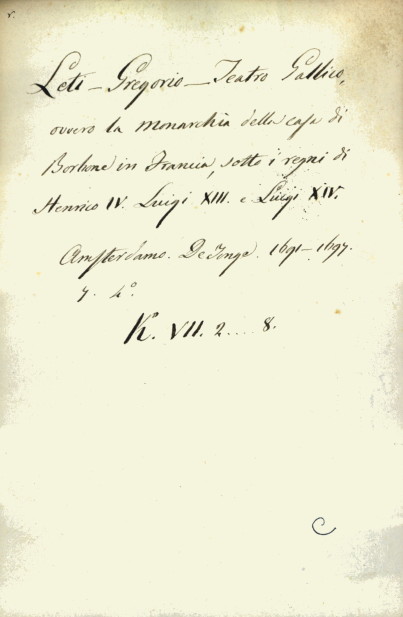 r.
Leti – Gregorio – Teatro Gallico,
ovvero la monarchia della casa di
Borbone in Francia, sotto i regni di
Henrico IV. Luigi XIII. e Luigi XIV.
Amsterdamo. De Jonge. 1691–1697.
7. 4°.
K°. VII. 2....8.
C